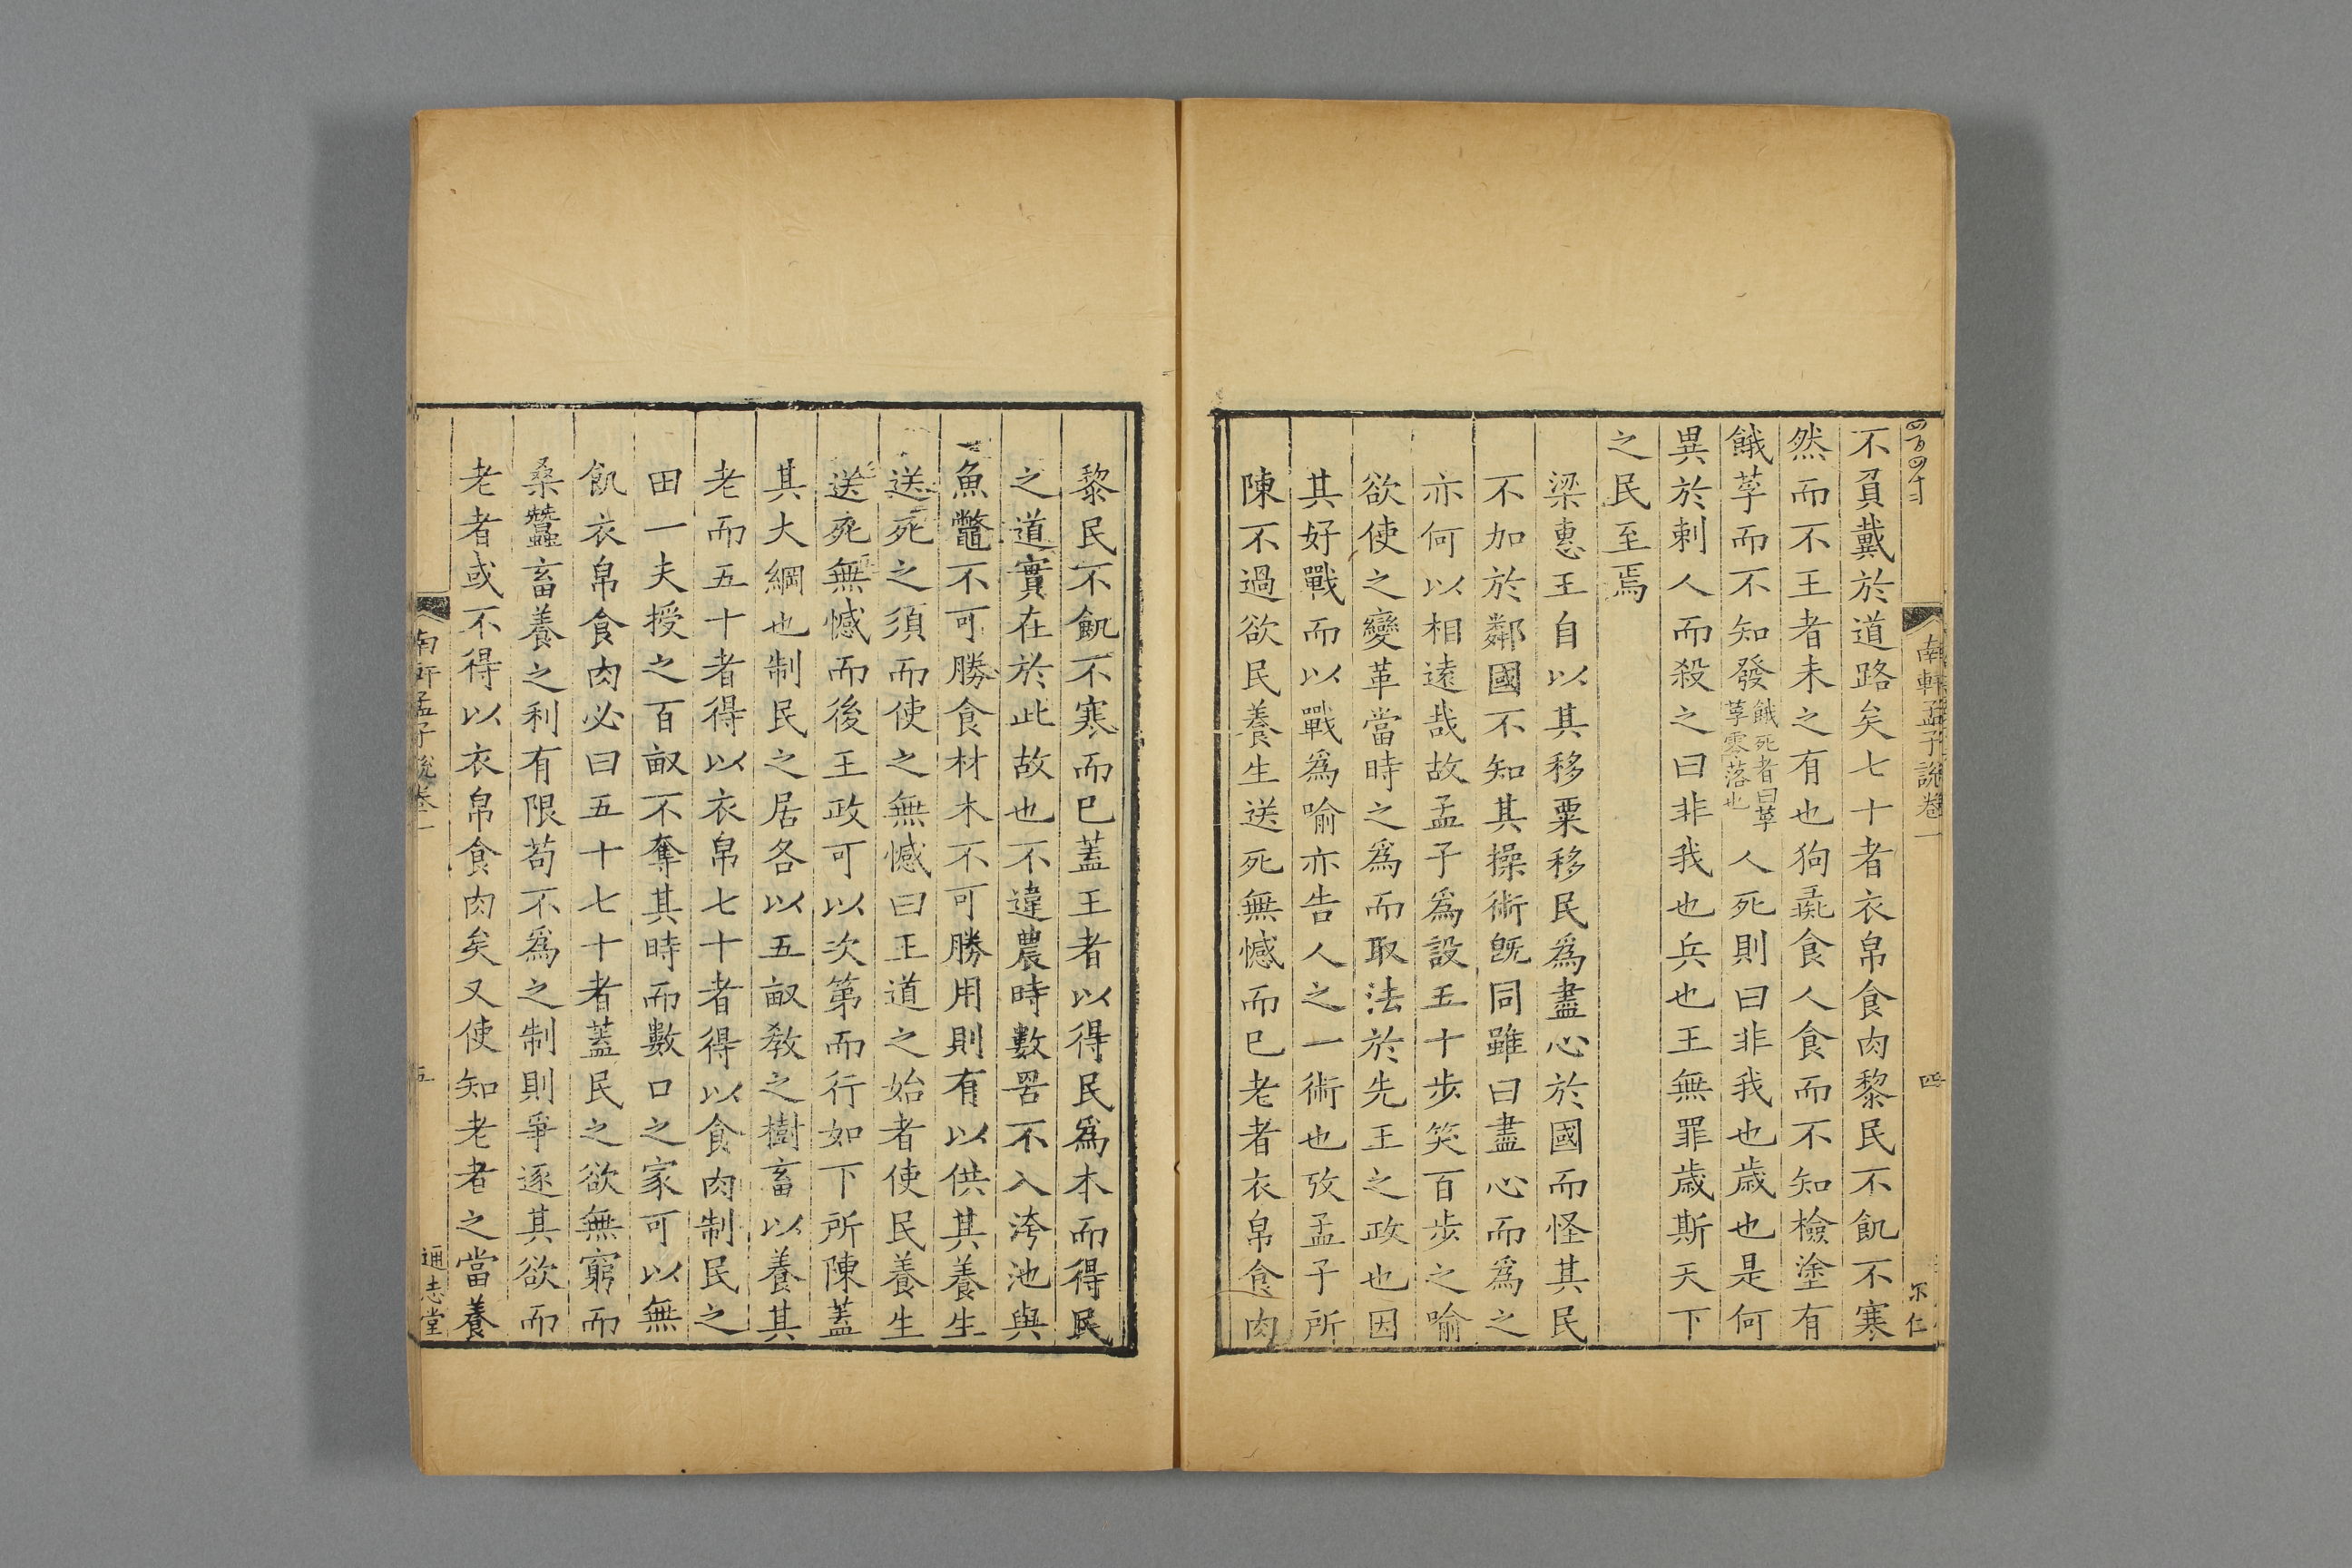 四百四十
南軒孟子說卷一
四
不負戴於道路矣七十者衣帛食肉黎民不飢不寒
然而不王者未之有也狗彘食人食而不知檢塗有
餓莩而不知發餓死者曰莩莩零落也人死則曰非我也歲也是何
異於刺人而殺之曰非我也兵也王無罪歲斯天下
之民至焉
梁惠王自以其移粟移民爲盡心於國而怪其民
不加於鄰國不知其操術旣同雖曰盡心而爲之
亦何以相遠哉故孟子爲設五十步笑百步之喻
欲使之變革當時之爲而取法於先王之政也因
其好戰而以戰爲喻亦告人之一術也攷孟子所
陳不過欲民養生送死無憾而已老者衣帛食肉
黎民不飢不寒而已蓋王者以得民爲本而得民
之道實在於此故也不違農時數罟不入洿池與
魚鼈不可勝食材木不可勝用則有以供其養生
送死之須而使之無憾曰王道之始者使民養生
送死無憾而後王政可以次第而行如下所陳蓋
其大綱也制民之居各以五畝敎之樹畜以養其
老而五十者得以衣帛七十者得以食肉制民之
田一夫授之百畝不奪其時而數口之家可以無
飢衣帛食肉必曰五十七十者蓋民之欲無窮而
桑蠶畜養之利有限苟不爲之制則爭逐其欲而
老者或不得以衣帛食肉矣又使知老者之當養
南軒孟子說卷一
五
通志堂